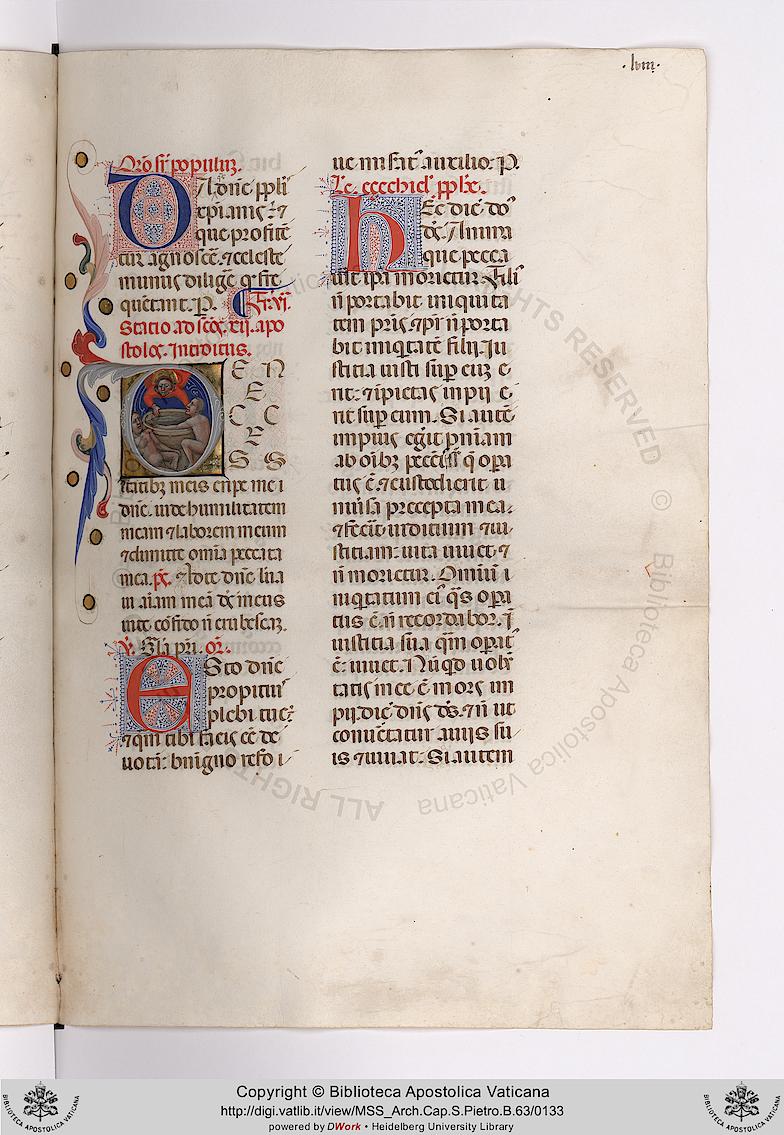 · lviii ·
Oro sr populuz.
Da dne ppli
xpianis: ⁊
que profite
tur agnosce. ⁊ celeste
munus dilige q fre
quetant. P. Fr. vi.
Statio ad scos. xii. apo
stolos. Introitus.
DE N
E
C C
E
S S
itatibz meis eripe me i
dne. vide humilitatem
meam ⁊ laborem meum
⁊ dimitte omia peccata
mea. ps. Ad te dne leva
vi aiam mea ds meus
in te cofido n erubescaz.
V. Gla pri. or.
Esto dne
propitius
plebi tue:
⁊ qm tibi facis ee de
vota: benigno refo i
ve miserat auxilio. P.
Le. eçechiel pphe.
Hec dic dns
ds. Anima
que pecca
vit ipa morietur. Fili
n portabit iniquita
tem pris ⁊ pr n porta
bit iniqtate filij. Iu
stitia iusti sup euz e
rit: ⁊ ipietas impij e
rit sup eum. Si aute
impius egit pniam
ab oibz peccis q opa
tus e ⁊ custodierit u
niusa precepta mea.
⁊ fecit iuditium ⁊ iu
stitiam: vita vivet ⁊
n morietur. Omniu i
iqtatum ei qs opa
tus e. n recordabor. I
iustitia sua qm opat
e: vivet. Nuqd volu
tatis mee e mors im
pij. dic dns ds. ⁊ n ut
convtatur a viis su
is ⁊ vivat. Si autem
ALL RIGHTS RESERVED © Biblioteca Apostolica Vaticana
Copyright © Biblioteca Apostolica Vaticana
http://digi.vatlib.it/view/MSS_Arch.Cap.S.Pietro.B.63/0133
powered by DWork • Heidelberg University Library
BIBLIOTECA APOSTOLICA VATICANA
BIBLIOTECA APOSTOLICA VATICANA